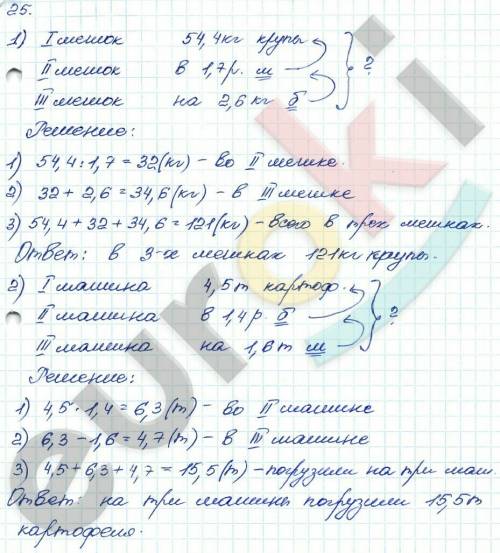 25.
1) I мешок 54,4кг крупы
II мешок в 1,7р. м ?
III мешок на 2,6кг б
Решение:
1) 54,4:1,7=32(кг) - во II мешке.
2) 32+2,6=34,6(кг) - в III мешке
3) 54,4+32+34,6=121(кг) - всего в трех мешках.
Ответ: в 3-х мешках 121кг крупы.
2) I машина 4,5т картоф.
II машина в 1,4р. б ?
III машина на 1,6т м
Решение:
1) 4,5·1,4=6,3(т) - во II машине
2) 6,3-1,6=4,7(т) - в III машине
3) 4,5+6,3+4,7=15,5(т) - погрузили на три маш.
Ответ: на три машины погрузили 15,5т
картофеля.
euroki